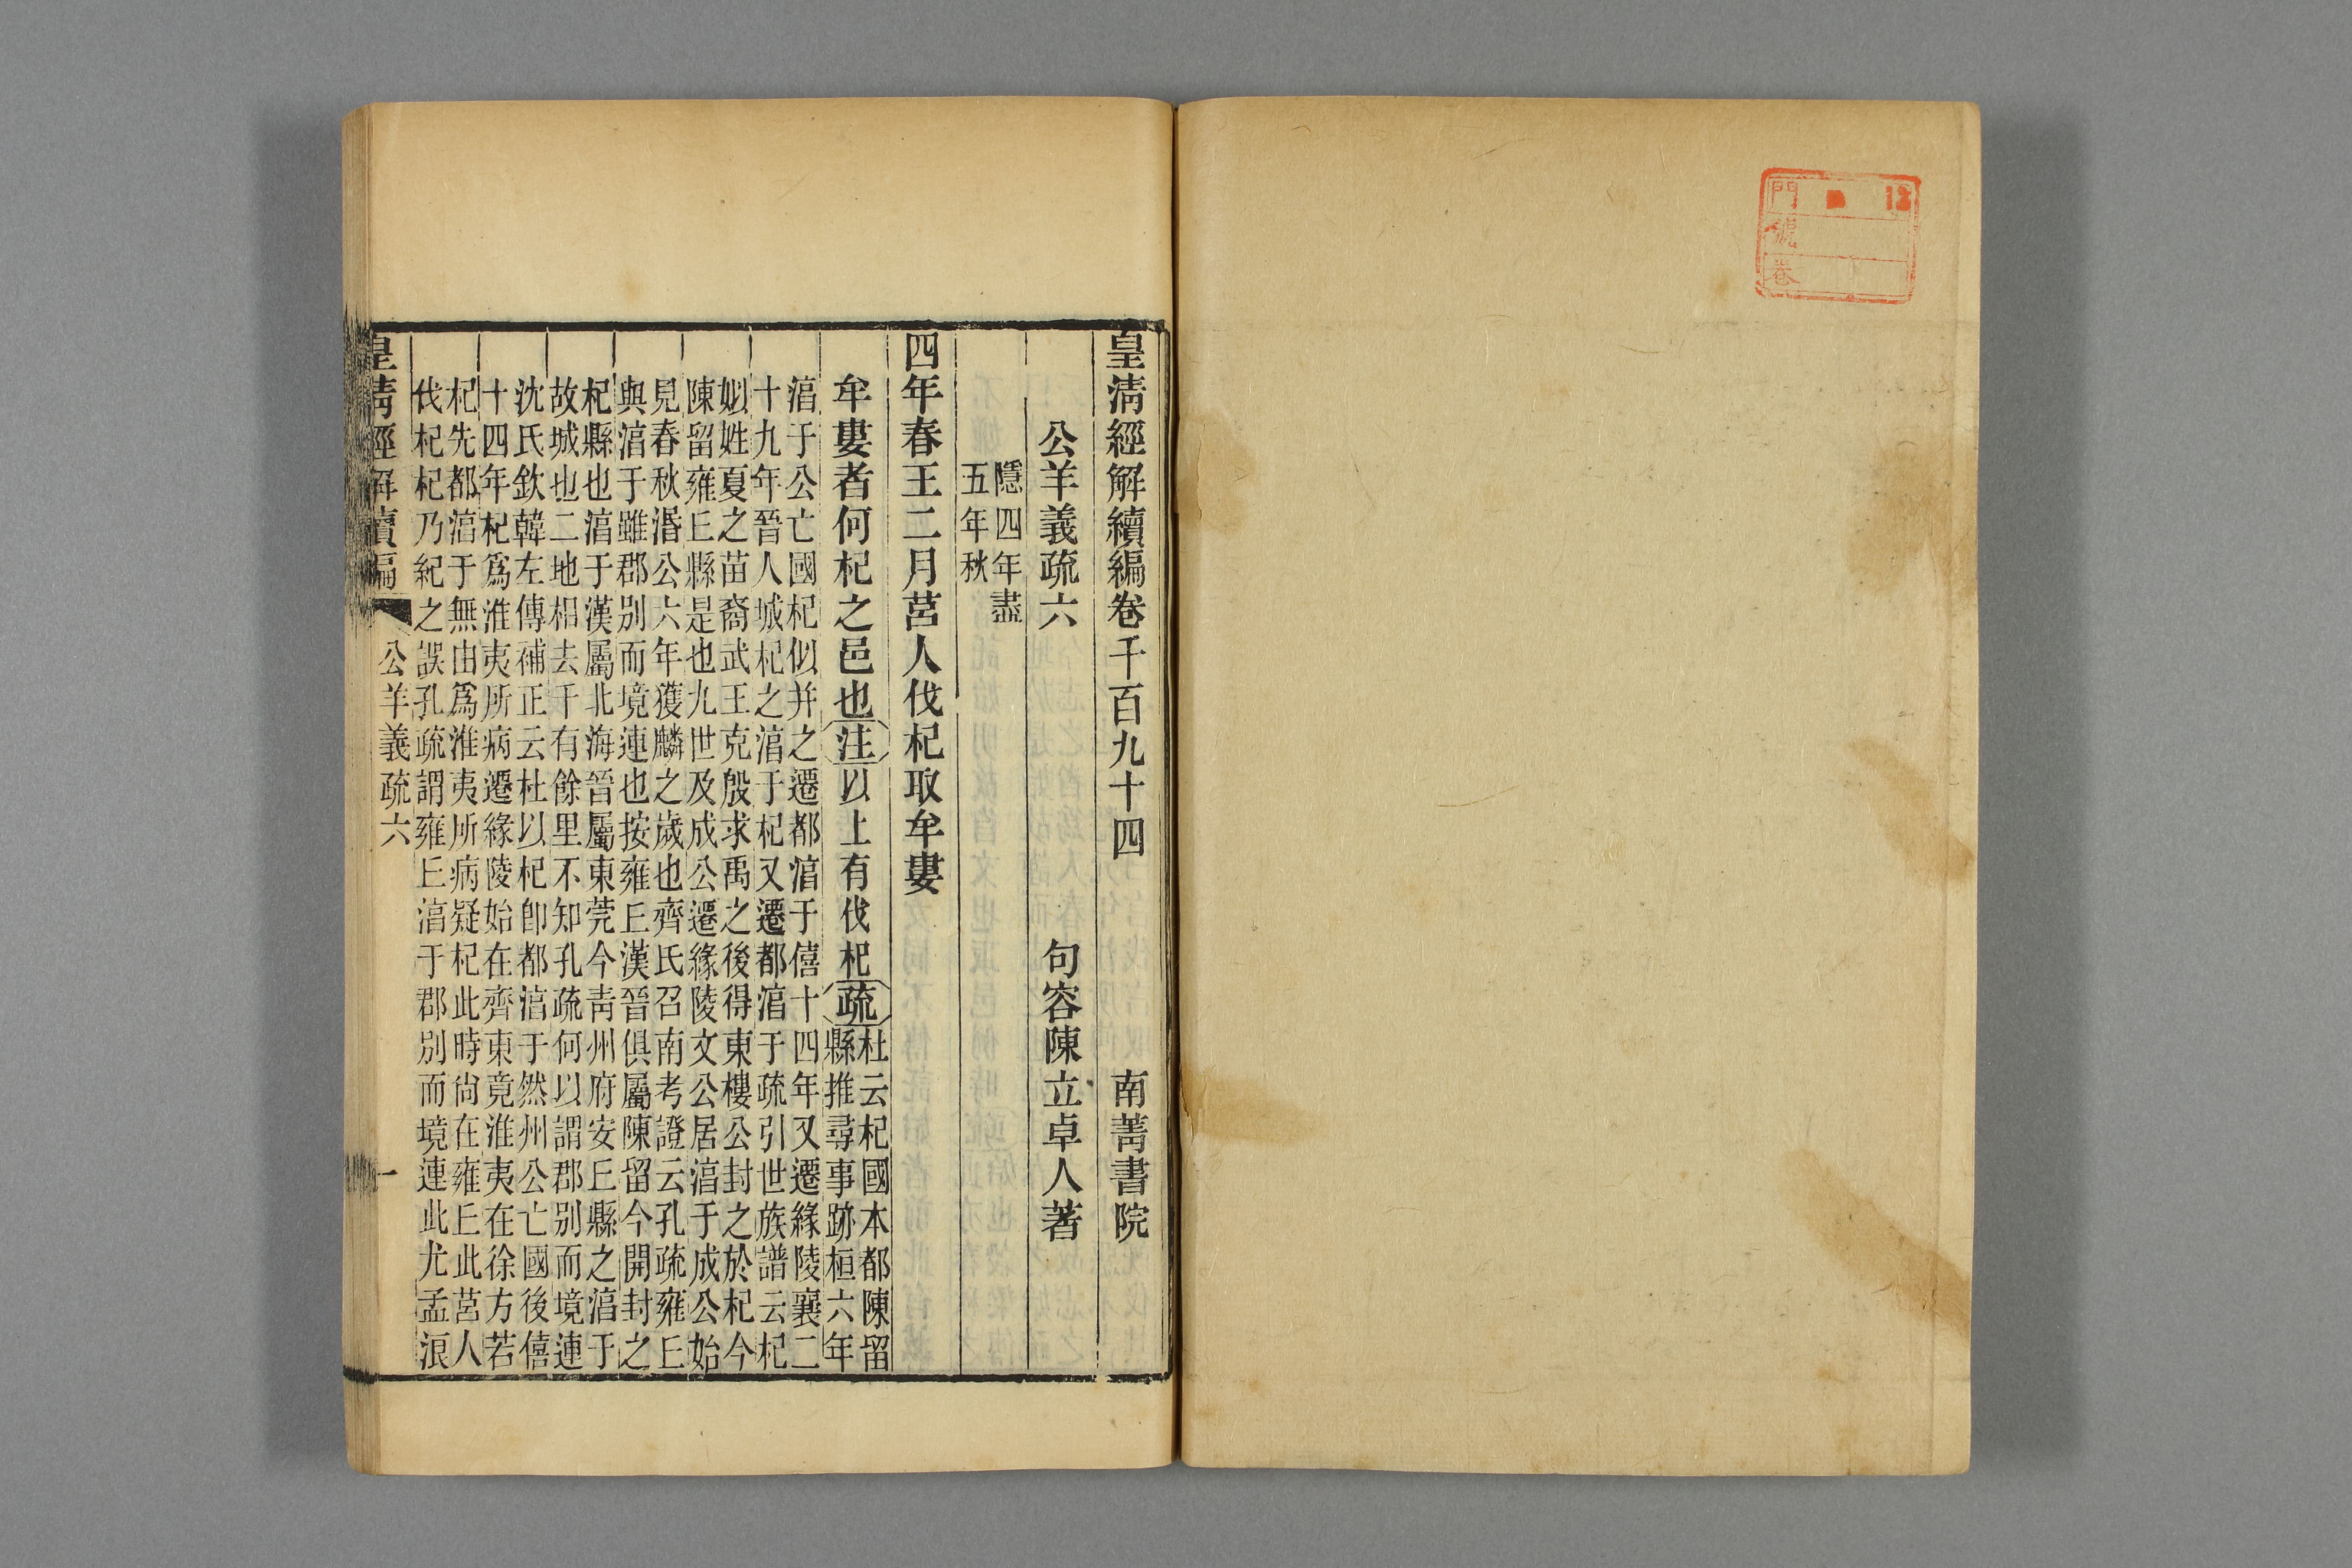 門
號
卷
皇清經解續編卷千百九十四 南菁書院
公羊義疏六 句容陳立卓人著
隱四年盡
五年秋
四年春王二月莒人伐杞取牟婁
牟婁者何杞之邑也注以上有伐杞疏
杜云杞國本都陳留
縣推尋事跡桓六年
湻于公亡國杞似并之遷都湻于僖十四年又遷緣陵襄二
十九年晉人城杞之湻于杞又遷都湻于疏引世族譜云杞
姒姓夏之苗裔武王克殷求禹之後得東樓公封之於杞今
陳留雍丘縣是也九世及成公遷緣陵文公居湻于成公始
見春秋湣公六年獲麟之歲也齊氏召南考證云孔疏雍丘
與湻于雖郡別而境連也按雍丘漢晉俱屬陳留今開封之
杞縣也湻于漢屬北海晉屬東莞今靑州府安丘縣之湻于
故城也二地相去千有餘里不知孔疏何以謂郡別而境連
沈氏欽韓左傳補正云杜以杞卽都湻于然州公亡國後僖
十四年杞爲淮夷所病遷緣陵始在齊東竟淮夷在徐方若
杞先都湻于無由爲淮夷所病疑杞此時尙在雍丘此莒人
伐杞杞乃紀之誤孔疏謂雍丘湻于郡別而境連此尤孟浪
皇清經解續編 公羊義疏六 一